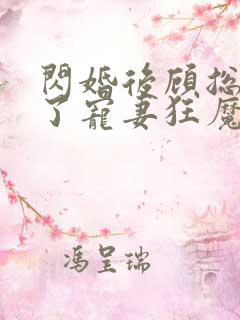 閃婚後顾总
了寵妻狂魔
馮呈瑞